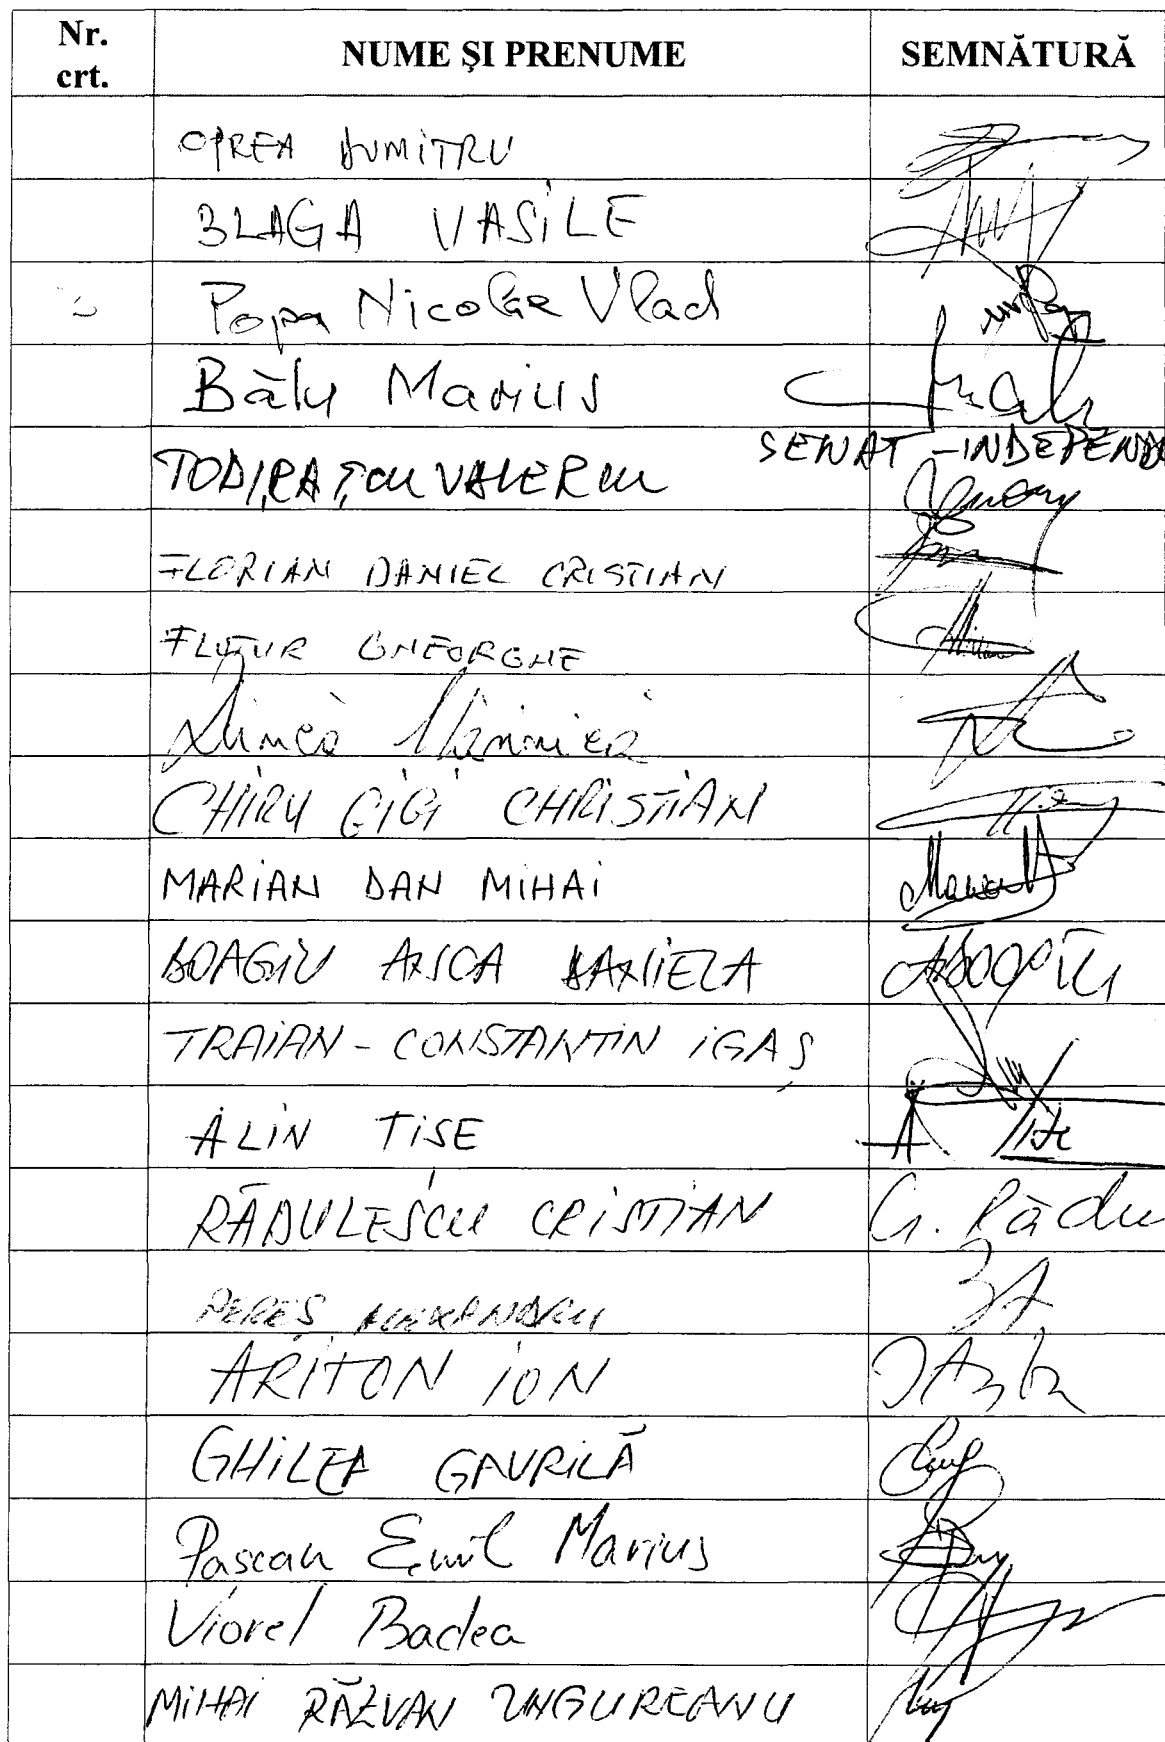 Nr. crt. NUME ŞI PRENUME SEMNĂTURĂ
OPREA DUMITRU
BLAGA VASILE
Popa Nicolae Vlad
Bălu Marius
TODIRAŞCU VALERIU SENAT - INDEPEND
FLORIAN DANIEL CRISTIAN
FLUTUR GHEORGHE
Mincă
CHIRU GIGI CHRISTIAN
MARIAN DAN MIHAI
BOAGIU ANCA DANIELA
TRAIAN - CONSTANTIN IGAŞ
ALIN TIŞE
RĂDULESCU CRISTIAN G. Rădu
PEREŞ ALEXANDRU
ARITON ION
GHILEA GAVRILĂ
Paşcan Emil Marius
Viorel Badea
MIHAI RĂZVAN UNGUREANU